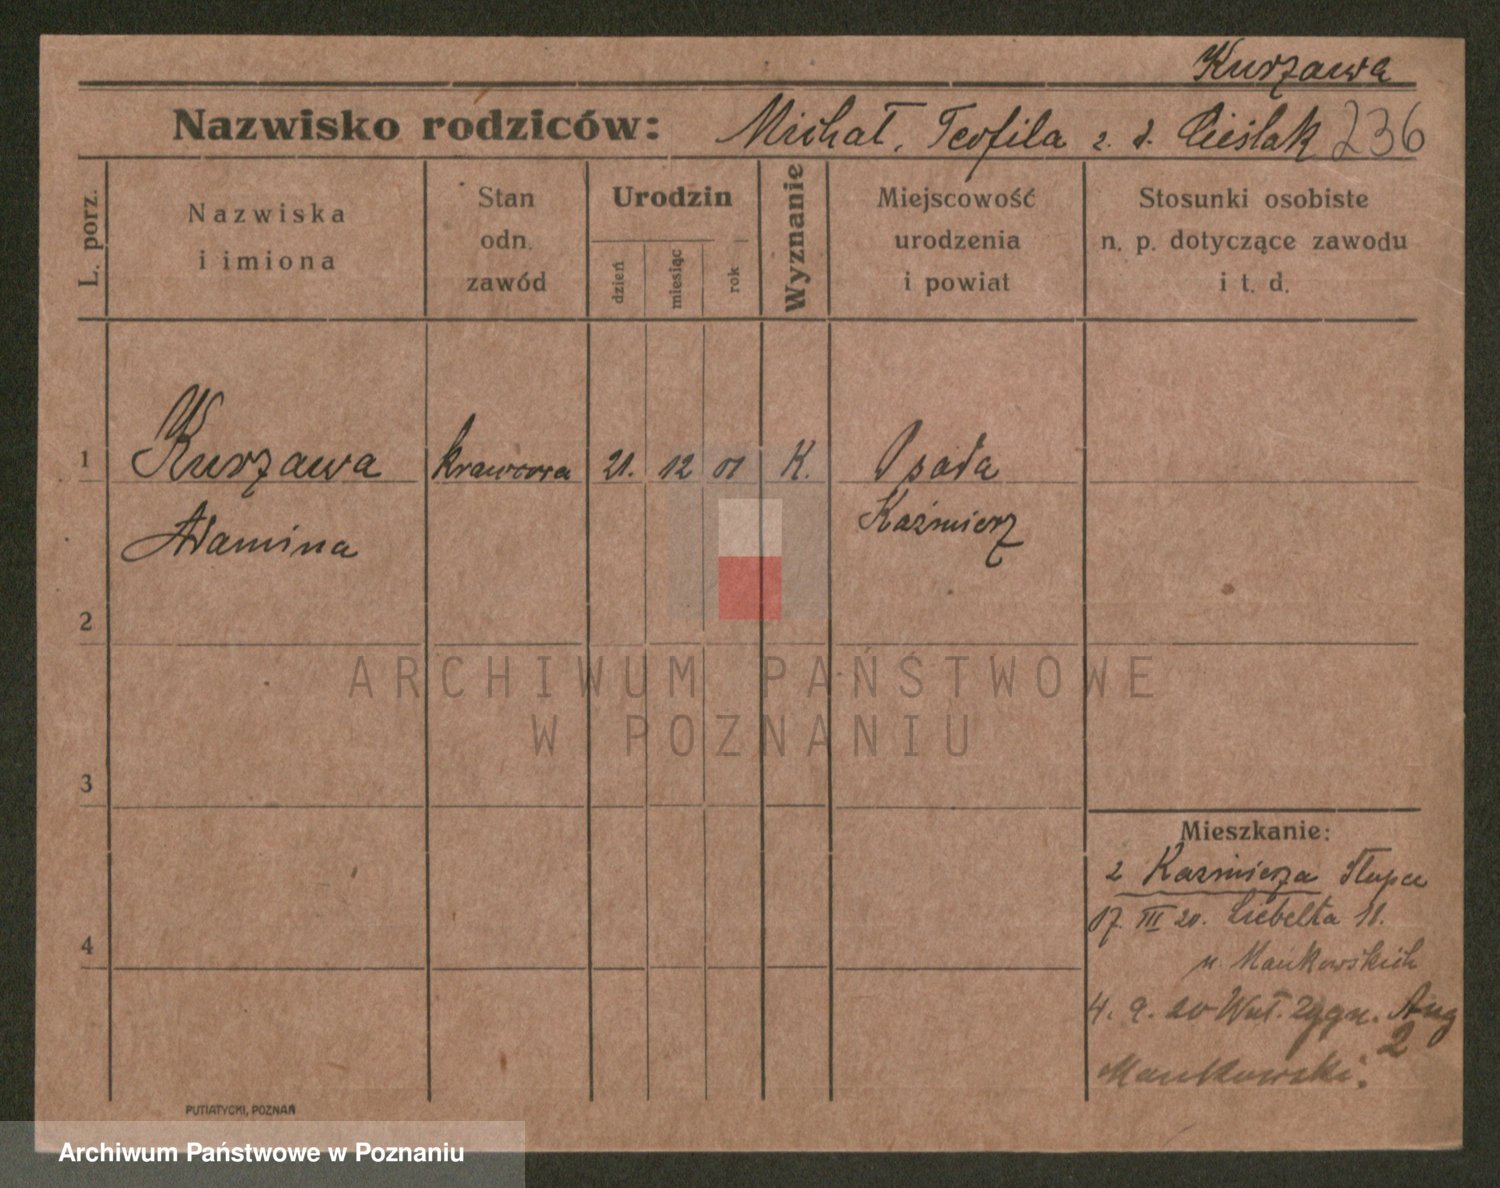 Kurzawa
Nazwisko rodziców: Michał, Teofila z. d. Cieślak 236
L. porz.
Nazwiska
i imiona
Stan
odn.
zawód
Urodzin
dzień
miesiąc
rok
Wyznanie
Miejscowość
urodzenia
i powiat
Stosunki osobiste
n. p. dotyczące zawodu
i t. d.
1 Kurzawa krawcowa 21. 12 01 K. Osada
Adamina Kaźmierz
2
ARCHIWUM PAŃSTWOWE
W POZNANIU
3
Mieszkanie:
z Kazmierza Słupca
17. III 20. Libelta 11.
u. Mańkowskich
4
4. 9. 20 Zygm. Aug
2
Mankowski.
PUTIATYCKI, POZNAŃ
Archiwum Państwowe w Poznaniu